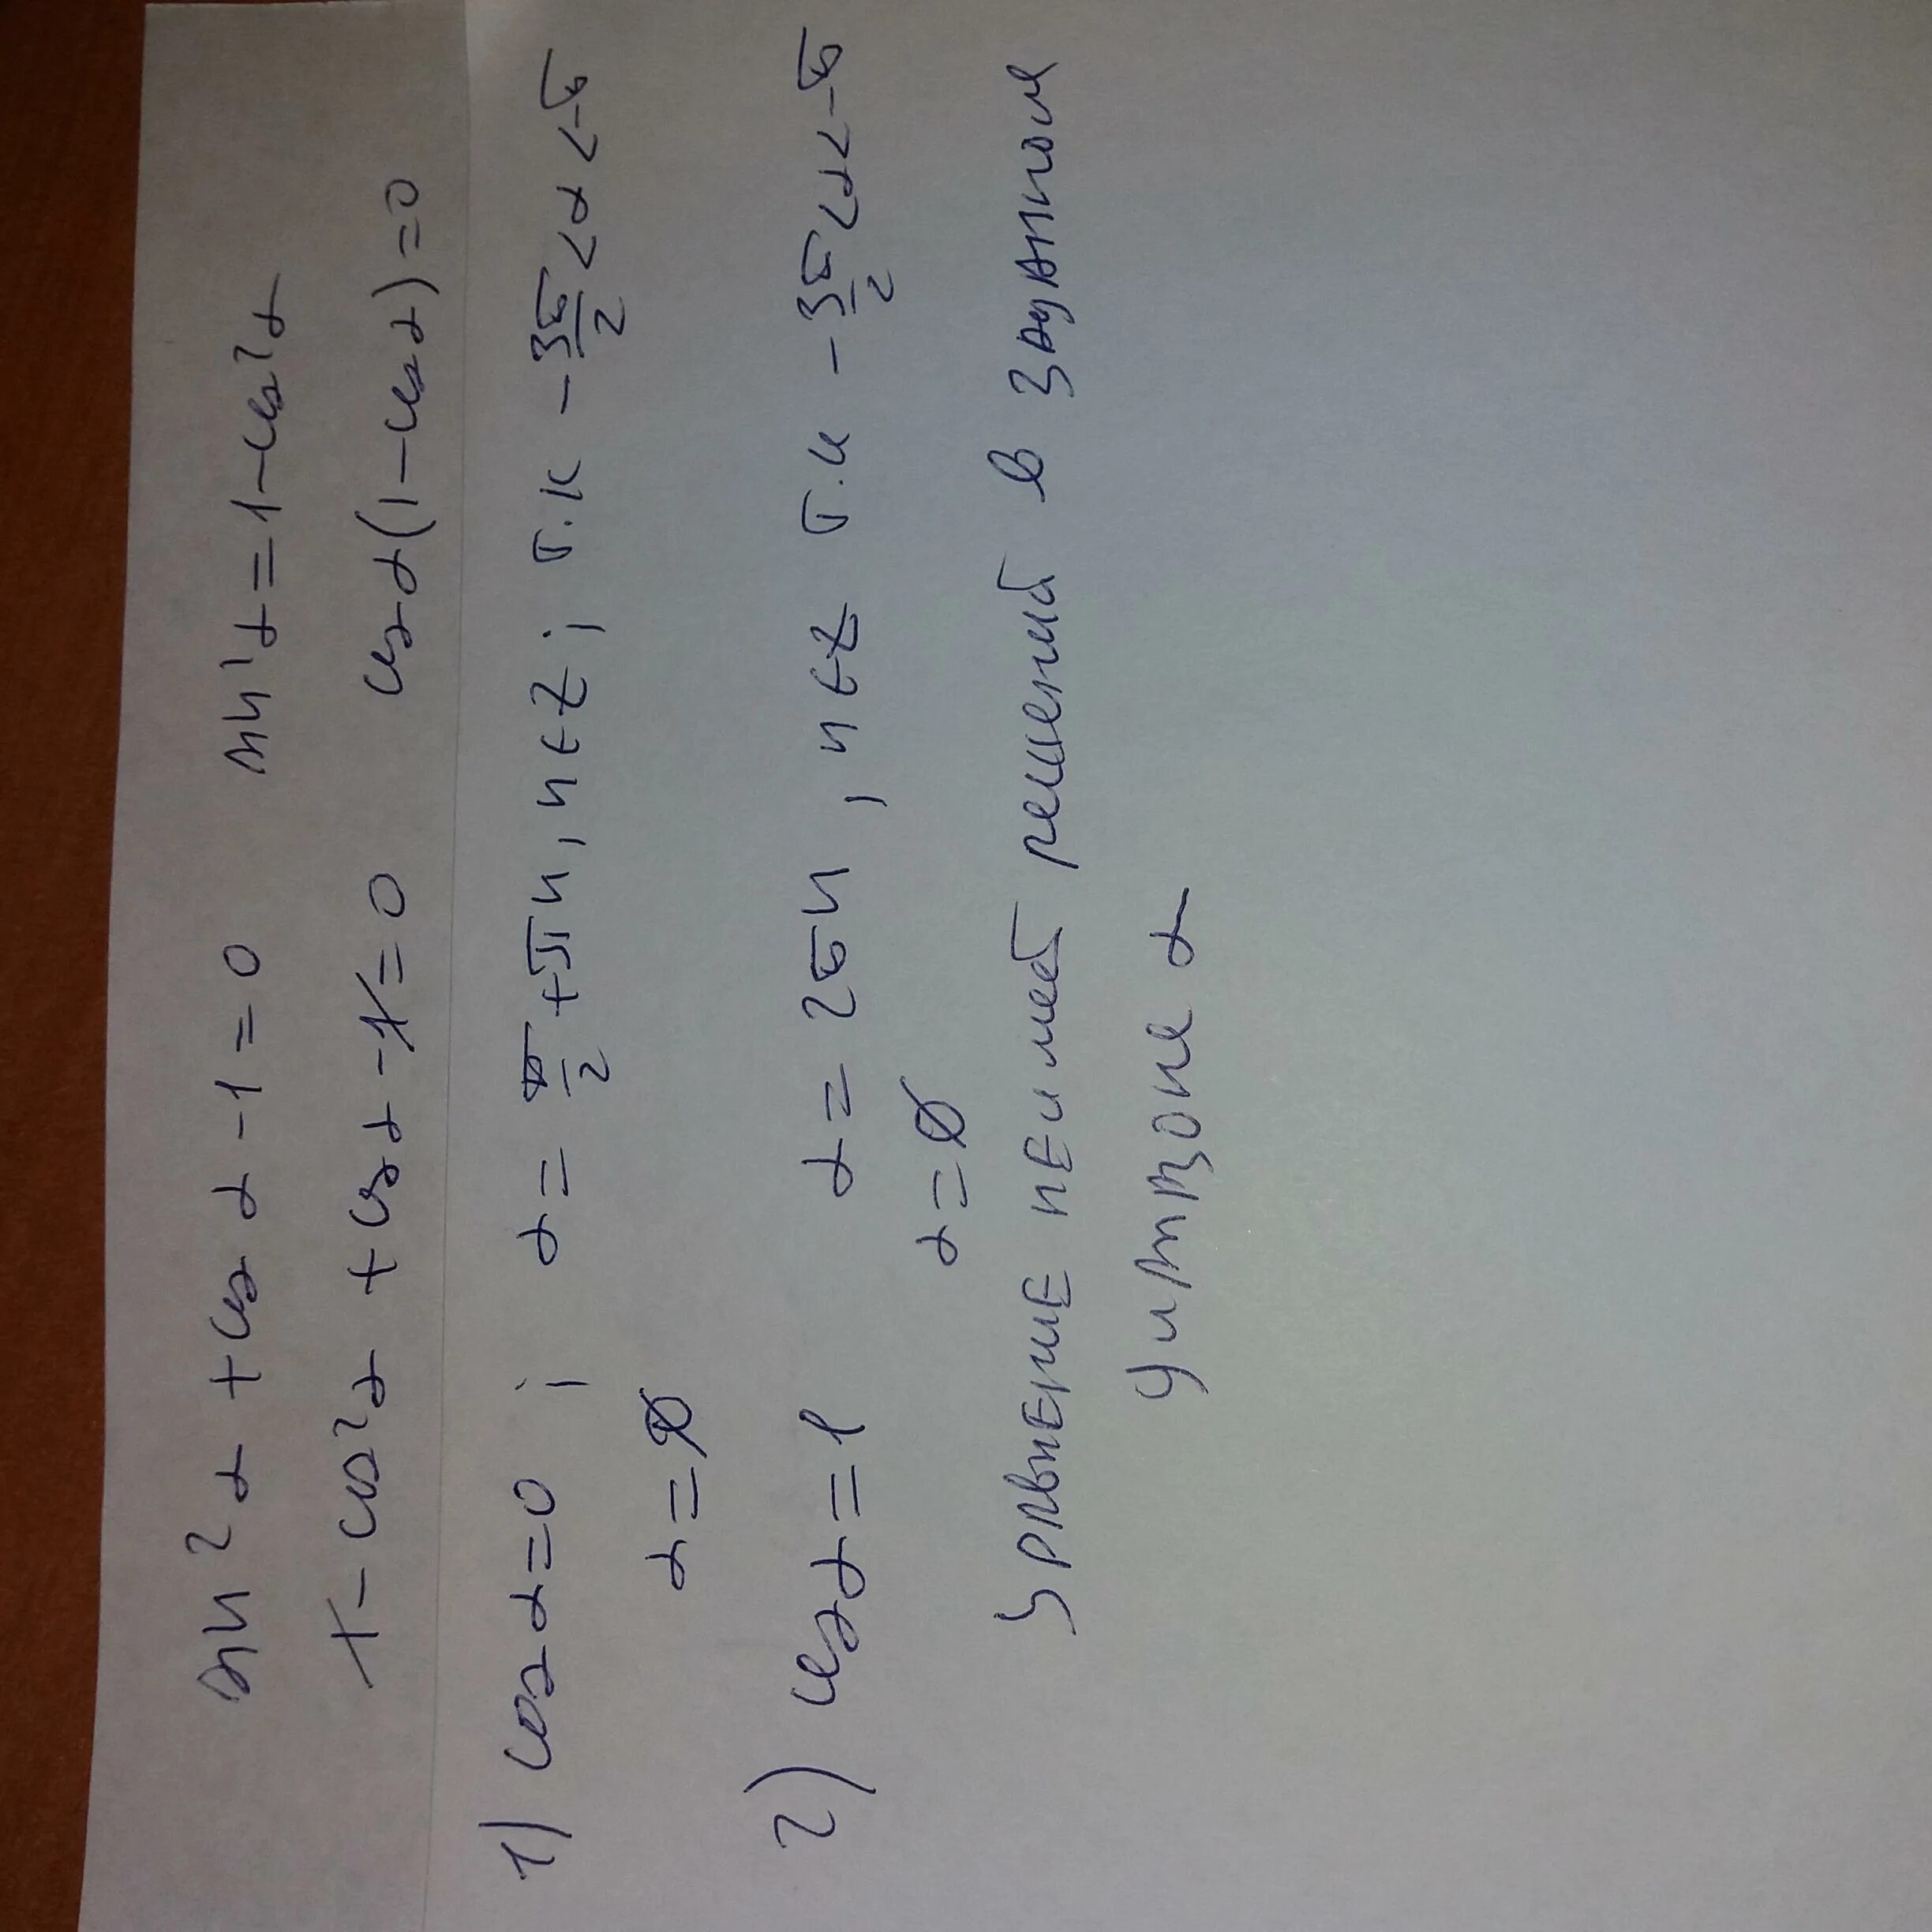 sin²α + cosα - 1 = 0   sin²α = 1 - cos²α
1 - cos²α + cosα - 1 = 0   cosα(1 - cosα) = 0
1) cosα = 0 ; α = π/2 + πn, n∈Z ; т.к - 3π/2 < α < -π
α = ∅
2) cosα = 1   α = 2πn, n∈Z т.к - 3π/2 < α < -π
α = ∅
уравнение не имеет решений в заданном
диапазоне α